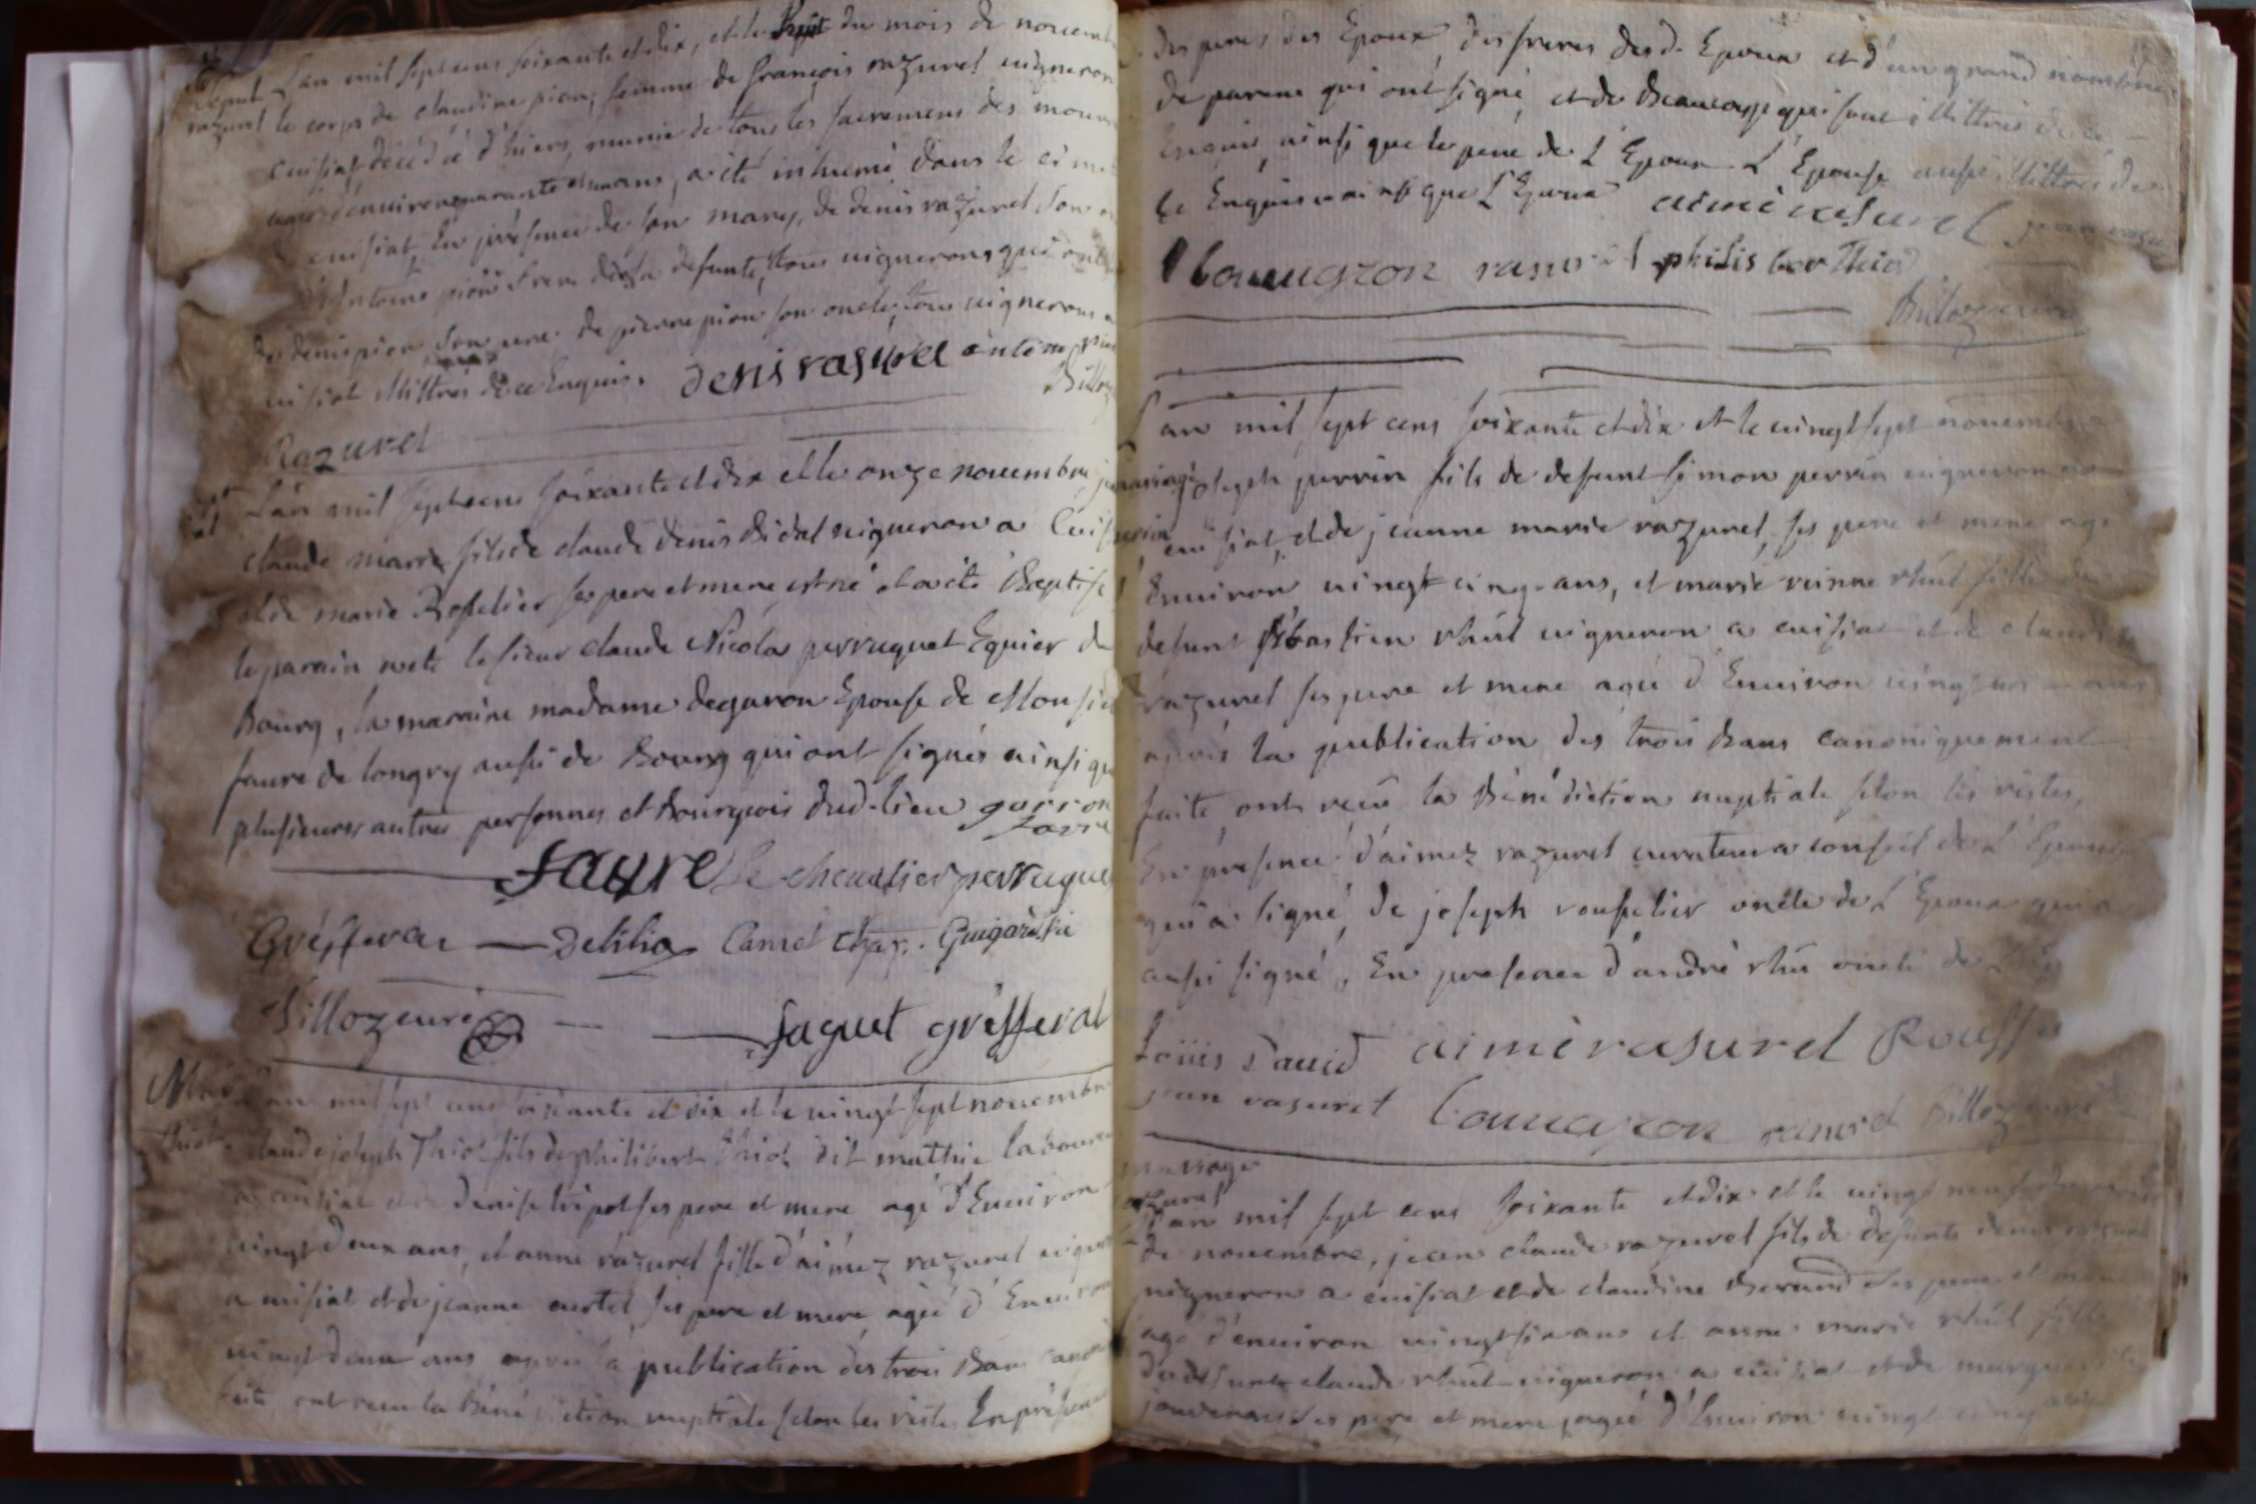 L'an mil sept cens soixante et dix, et le huit du mois de novemb
razurel le corps de claudine pion, femme de françois razurel vigneron
cuisiat décédéé d'hiers, munie de tous les sacremens des mour
environ quarante ans, a été inhumé dans le cime
cuisiat, En présence de son mary, de denis razurel son
d'Antoine pion frere de la defunte, tous vignerons qui ont
de denis pion son de pierre pion son oncle, tous vignerons
cuisiat illittrés de ce Enquis. denis rasurel antoine pion
Billoz
Razurel
L'an mil sept cens soixante et dix et le onze novembre
claude marie fils de claude denis didat vigneron a Cuis
et de marie Rosselier ses pere et mere est né et a été Baptisé
le parain noté le sieur claude Nicola perruquet Equier de
Bourg, la maraine madame degaron Epouse de Monsie
faure de longry aussi de Bourg qui ont signés ainsi que
plusieurs autres personnes et Bourgeois dud. lieu garron
favre
faure le chevalier perruque
Grésseral Delilia Camel
Billoz curé Jaquet grésseral
L'an mil sept cens soixante et dix et le vingt sept novembre
thiot claude joseph Thiot fils de philibert thiot dit mathie laboureur
a cuisiat et de denise tripot ses pere et mere agé d'Environ
vingt deux ans, et anne razurel fille d'aimez razurel vigne
a cuisiat et de jeanne curtel ses pere et mere, agéé d'Environ
vingt deux ans apres la publication des trois Bans canon
faite ont receu la Béné diction nuptiale selon les ristes En présence
des peres des Epoux, des freres desd. Epoux et d'un grand nombre
de parens qui ont signé, et de Beaucoup qui sont illittrés de ce
Enquis, ainsi que le pere de L'Epoux L'Epouse aussi illittrée de
ce Enquise ainsi que L'Epoux aimé rasurel jean rasu
bouvagron rasurel philisber Thiot
Billoz curé
L'an mil sept cens soixante et dix et le vingt sept novembre
mariage joseph perrin fils de defunt simon perrin vigneron a
perrin cuisiat, et de jeanne marie razurel, ses pere et mere agé
d'Environ vingt cinq ans, et marie reinne rhút fille de
defunt sébastien rhút vigneron a cuisiat et de claudine
razurel ses pere et mere agéé d'Environ vingt ans
aprés la publication des trois Bans canoniquement
faite, ont receu la Béné diction nuptiale selon les ristes,
En présence d'aimez razurel curateur a conseil de L'Epouse
qui a signé, de joseph rousselier oncle de L'Epoux qui a
aussi signé, En presence d'andré rhút oncle de
Loüis david aimé rasurel Rouss
jean rasuret bouvagron rasurel Billoz curé
mariage
razurel
L'an mil sept cens soixante et dix et le vingt neuf du
de novembre, jean claude razurel fils de defunt denis razurel
vigneron a cuisiat et de claudine Berand ses pere et mere
agé d'environ vingt six ans et anne marie rhút fille
de defunt claude rhút vigneron a cuisiat et de marguerite
ses pere et mere, agéé d'Environ vingt cinq ans